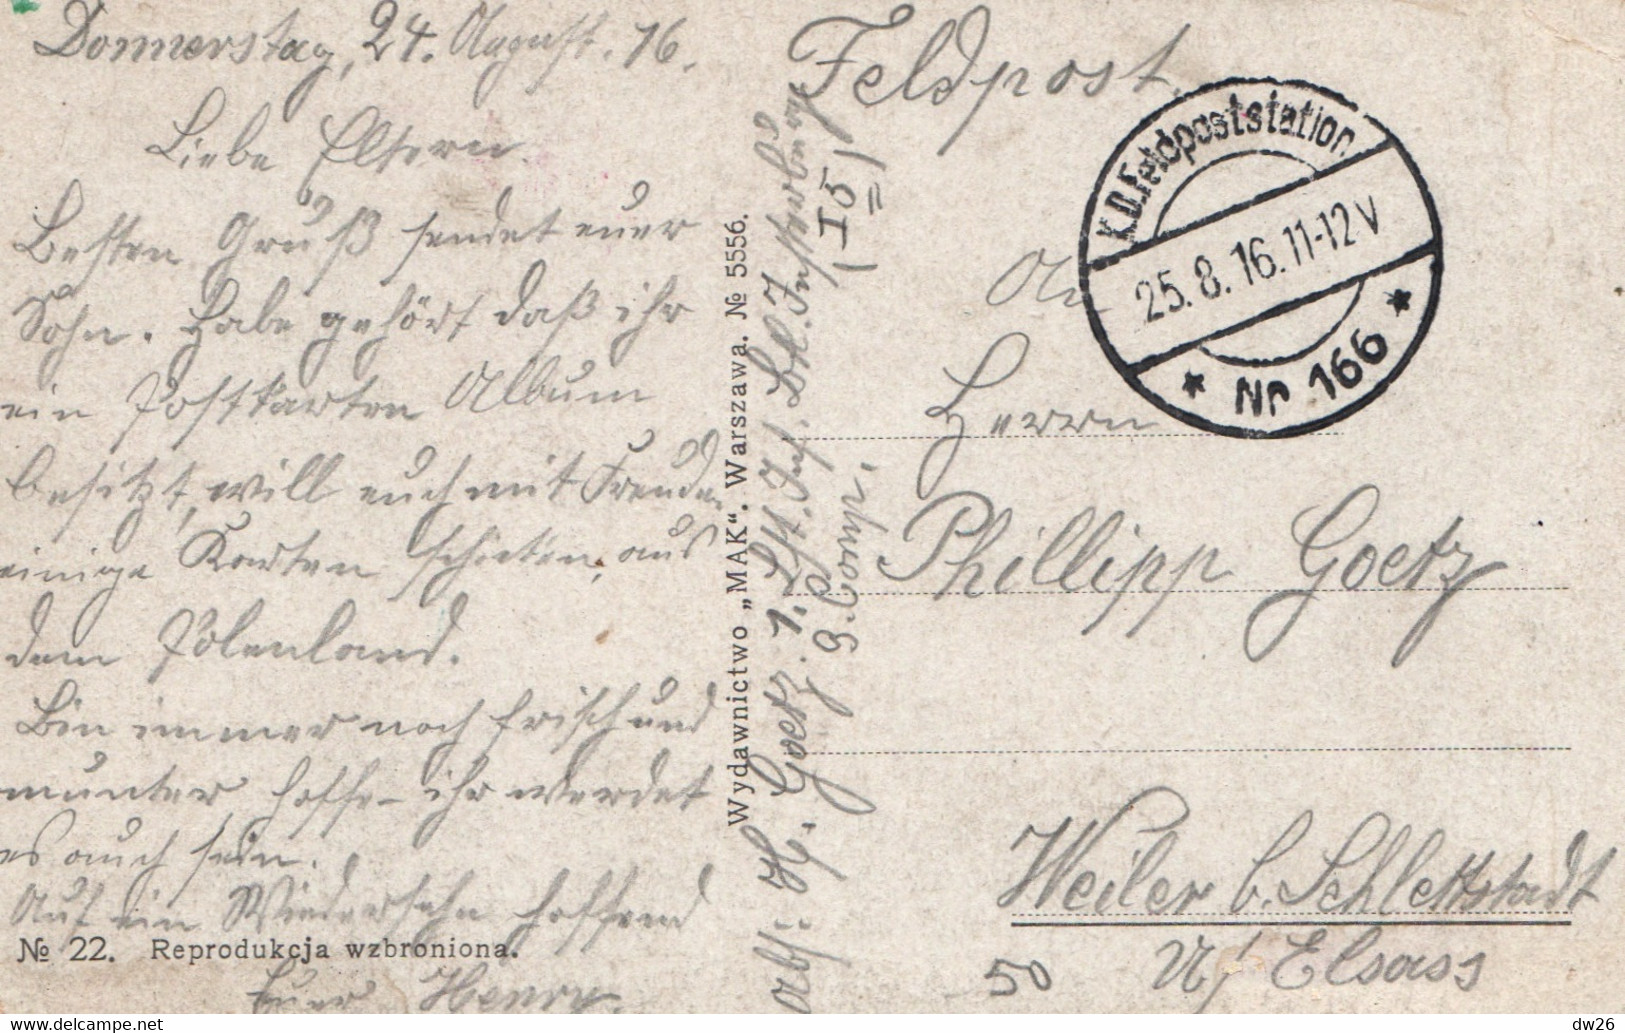 Donnerstag, 24. August. 16.
Liebe Eltern.
Besten Gruß sendet euer
Sohn. Habe gehört daß ihr
ein Postkarten Album
besitzt, will euch mit Freuden
einige Karten schicken, aus
dem Polenland.
Bin immer noch frisch und
munter hoffe ihr werdet
es auch sein.
Auf ein Wiedersehn hoffend
Euer Henry.
№ 22. Reprodukcja wzbroniona.
Wydawnictwo „MAK“. Warszawa. № 5556.
Abs: H. Goetz. 1. Inf.
3. Comp.
Feldpost.
K.D.Feldpoststation
25.8.16.11-12V
* Nr 166 *
An
Herrn
Phillipp Goetz
Weiler b. Schlettstadt
U/ Elsass
50
dw26